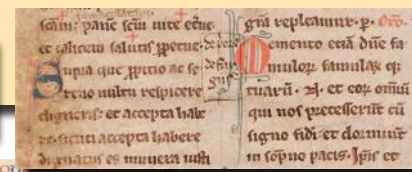 scam: panē scm uite etne
et calicem salutis ppetue. de rece
Supra que ppitio ac se
reno uultu respicere
digneris: et accepta habe
re. sicuti accepta habere
dignatus es munera iusti
grā repleamur. p. Oro.
Memento etiā dūe fa
mulor famularū q;
tuarū . N. et eor omiū
qui nos precesserūt cū
signo fidi et dormiūt
in sōpno pacis. Ipsis et